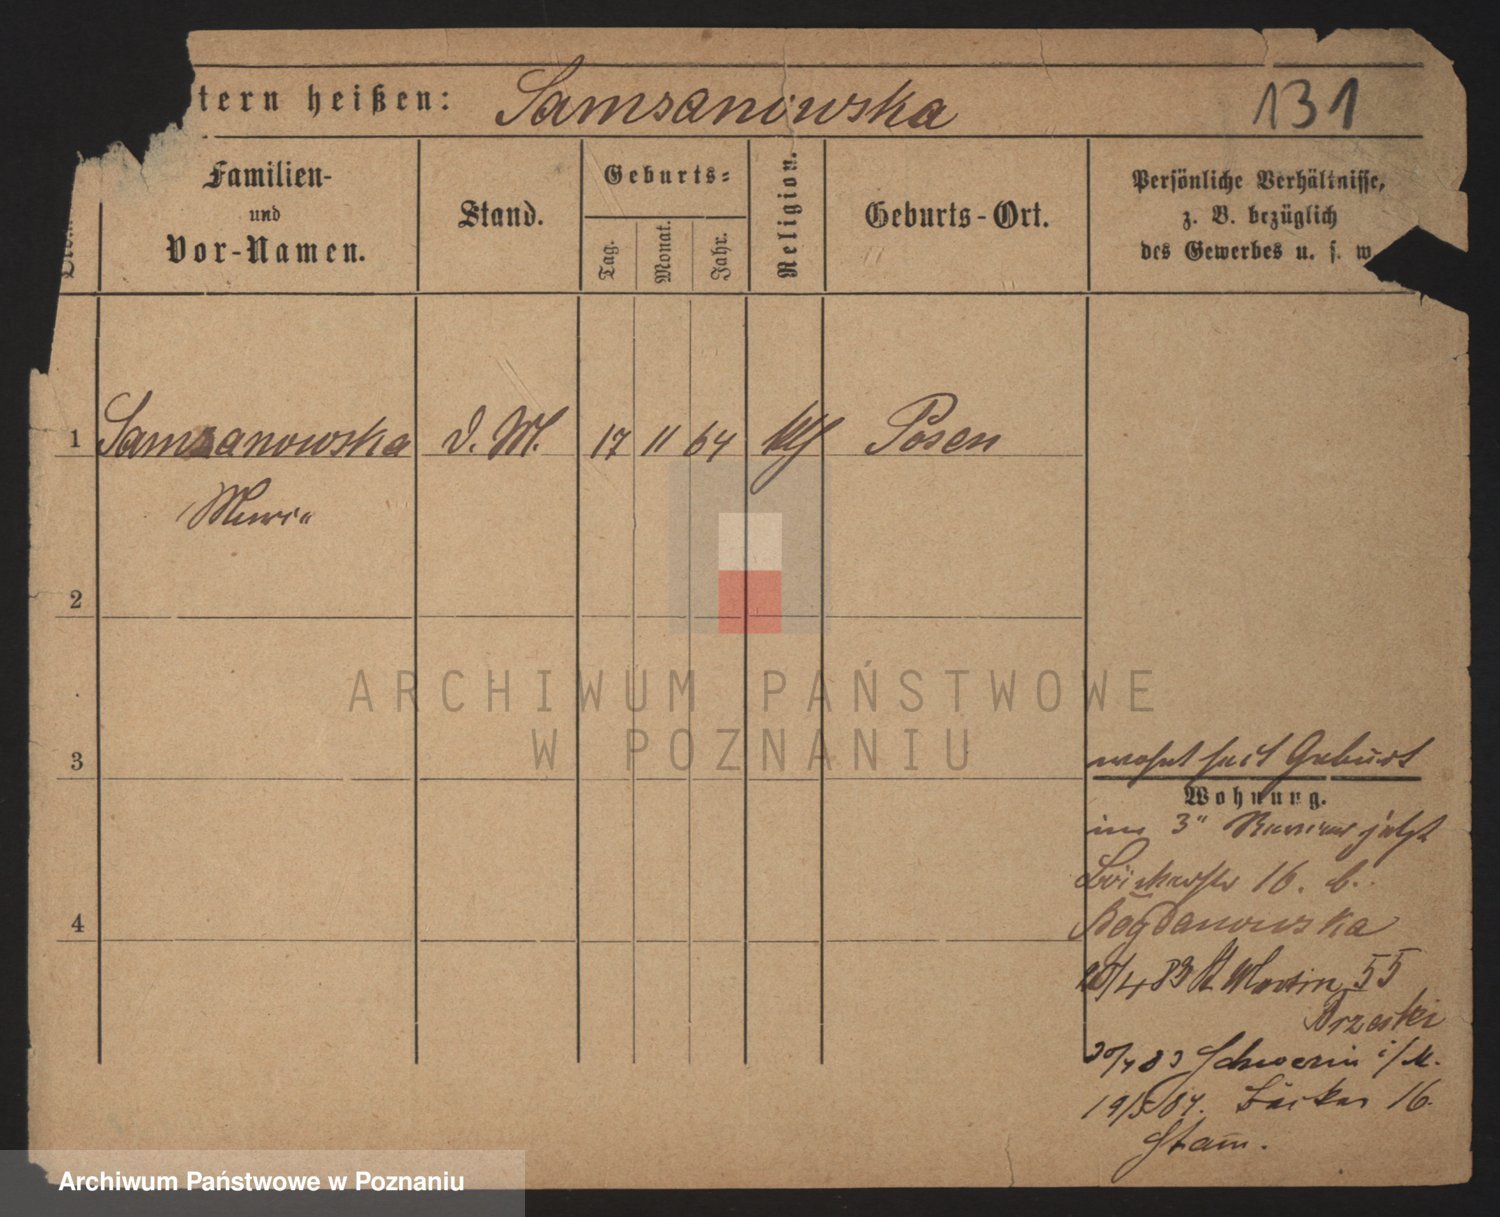 tern heißen: Samsanowska 131
Familien-
und
Vor-Namen.
Stand.
Geburts-
Tag.
Monat.
Jahr.
Religion.
Geburts-Ort.
Persönliche Verhältnisse,
z. B. bezüglich
des Gewerbes u. s. w.
1 Samsanowska d. M. 17 11 64 Posen
Marie
2
3
4
wohnt seit Geburt
Wohnung.
im 3" Revier jetzt
16. b.
Bogdanowska
83 St. Martin 55
Brzeski
83 Schwerin i/M.
84. Bäcker 16.
ARCHIWUM PAŃSTWOWE
W POZNANIU
Archiwum Państwowe w Poznaniu